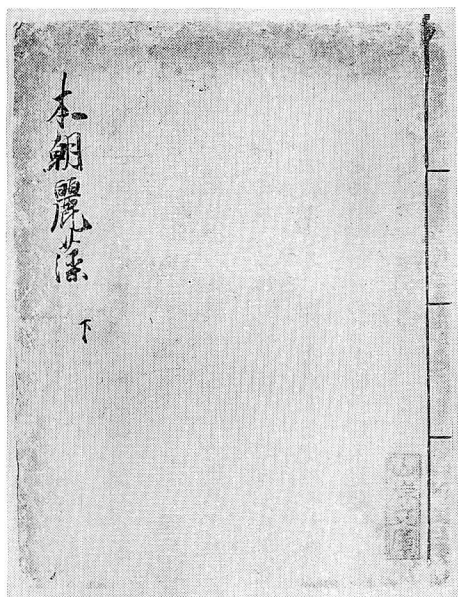 本朝麗藻
下